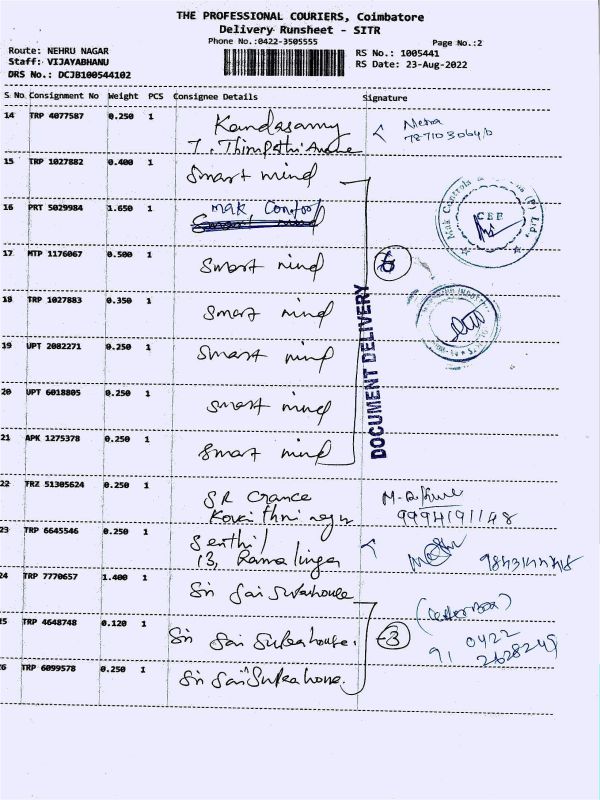 THE PROFESSIONAL COURIERS, Coimbatore
Delivery Runsheet - SITR
Phone No.:0422-3505555
Page No.:2
Route: NEHRU NAGAR
RS No.: 1005441
Staff: VIJAYABHANU
RS Date: 23-Aug-2022
DRS No.: DCJB100544102
S No. Consignment No Weight PCS Consignee Details Signature
14 TRP 4077587 0.250 1 Kandasamy
7, Thirupathi
15 TRP 1027882 0.400 1 Smart mind
16 PRT 5029984 1.650 1 mak
17 MTP 1176067 0.500 1 Smart mind 6
18 TRP 1027883 0.350 1 Smart mind
DOCUMENT DELIVERY
19 UPT 2082271 0.250 1 Smart mind
20 UPT 6018805 0.250 1 Smart mind
21 APK 1275378 0.250 1 Smart mind
22 TRZ 51305624 0.250 1 SR
9994191148
23 TRP 6645546 0.250 1 Senthil
13, Ramalinga
24 TRP 7770657 1.400 1 Sri Sai
25 TRP 4648748 0.120 1 Sri Sai 3
0422
91 2628249
26 TRP 6099578 0.250 1 Sri Sai